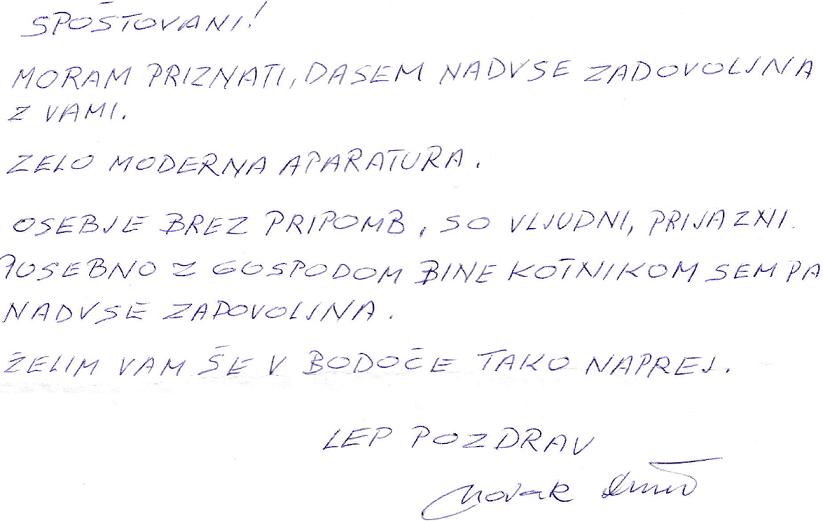 SPOŠTOVANI!
MORAM PRIZNATI, DA SEM NADVSE ZADOVOLJNA
Z VAMI.
ZELO MODERNA APARATURA.
OSEBJE BREZ PRIPOMB, SO VLJUDNI, PRIJAZNI.
POSEBNO Z GOSPODOM BINE KOTNIKOM SEM PA
NADVSE ZADOVOLJNA.
ŽELIM VAM ŠE V BODOČE TAKO NAPREJ.
LEP POZDRAV
Novak